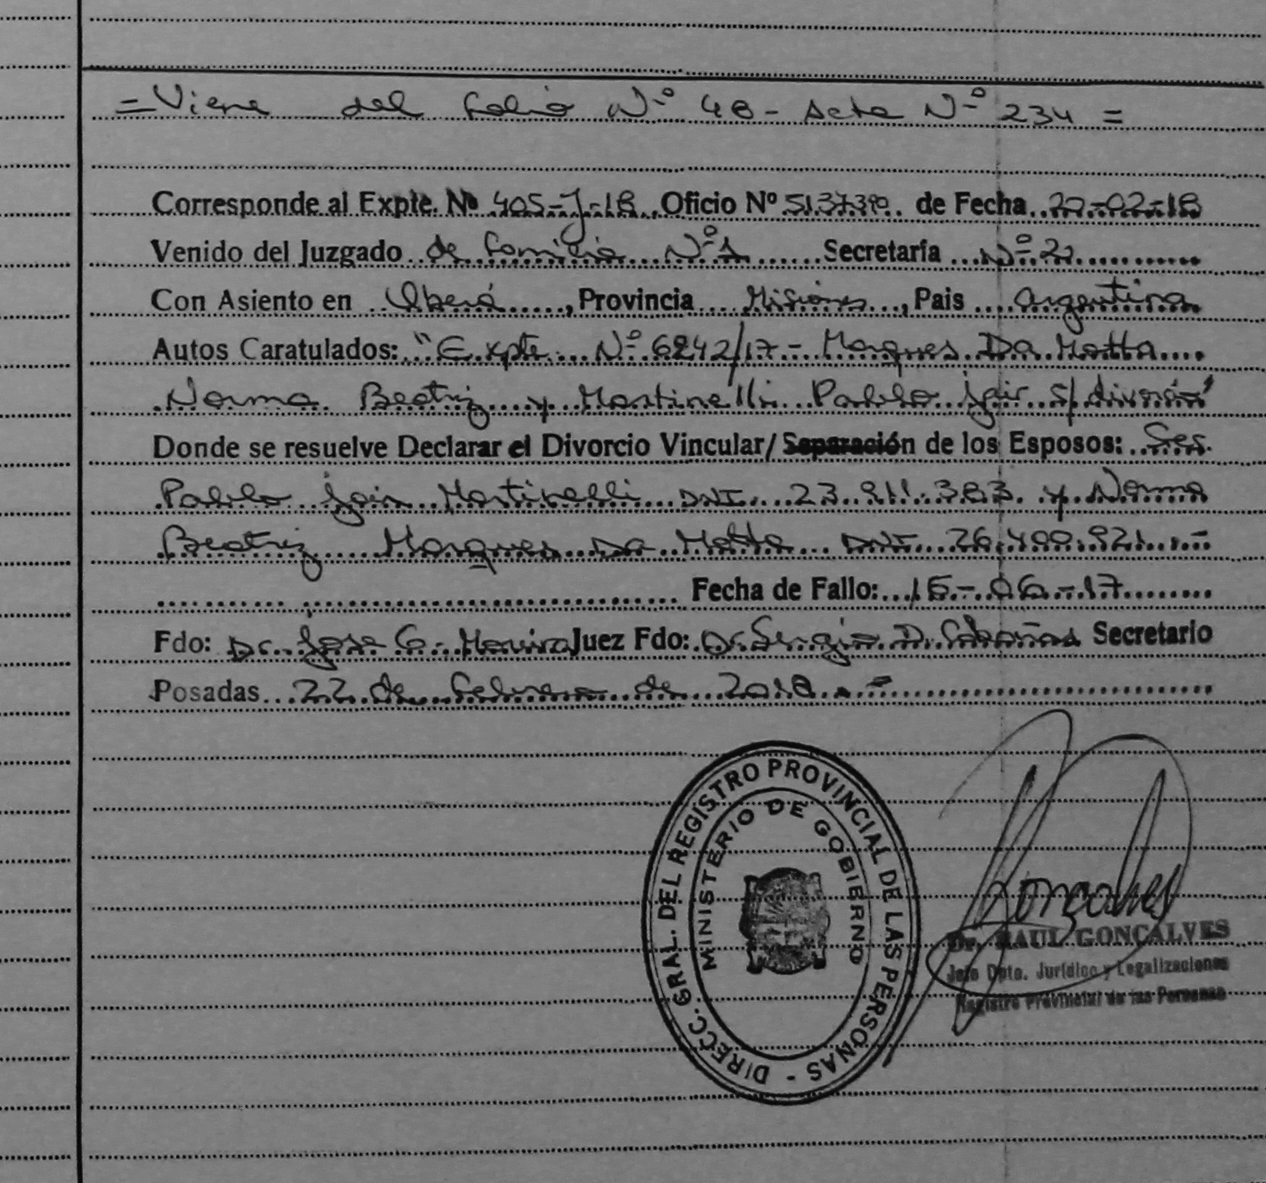 = Viene del folio Nº 48 - Acta Nº 234 =
Corresponde al Expte. Nº 405-J-18 Oficio Nº 5137390 de Fecha 20-02-18
Venido del Juzgado de familia Nº 1 Secretaría Nº 2
Con Asiento en Oberá, Provincia Misiones, Pais Argentina
Autos Caratulados: "Expte Nº 6242/17 - Marques Da Motta
Norma Beatriz y Martinelli Pablo Jair s/ divorcio"
Donde se resuelve Declarar el Divorcio Vincular/Separación de los Esposos: Ses.
Pablo Jair Martinelli DNI 23.911.383 y Norma
Beatriz Marques Da Motta DNI 26.400.921.-
Fecha de Fallo: 15-06-17
Fdo: Dr. Jose G. Moreira Juez Fdo: Dr. Sergio D. Cabañas Secretario
Posadas 22 de febrero de 2018.=
DIRECC. GRAL. DEL REGISTRO PROVINCIAL DE LAS PERSONAS -
MINISTERIO DE GOBIERNO
Goncalves
Dr. RAUL GONCALVES
Jefe Dpto. Jurídico y Legalizaciones
Registro Provincial de las Personas